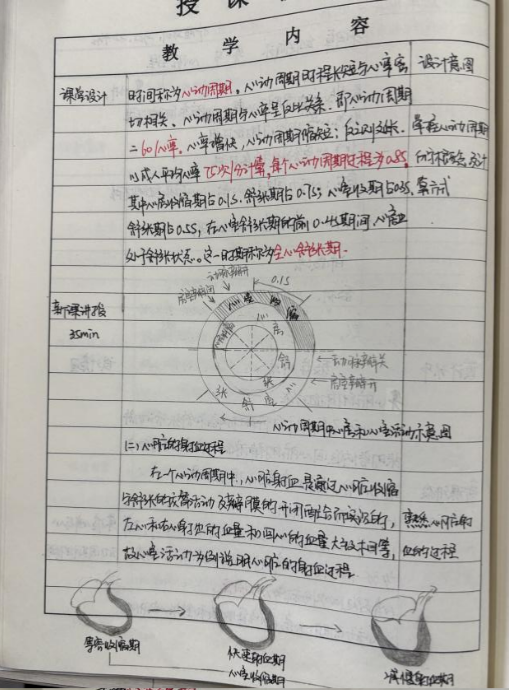 授课
教学内容
课堂设计
设计意图
时间称为心动周期，心动周期时程长短与心率密
切相关、心动周期与心率呈反比关系、即心动周期
=60/心率，心率增快，心动周期缩短；反之则延长、
掌握心动周期
以成人平均心率75次/分计算，每个心动周期过程为0.8s，
的概念及计
其中心房收缩期占0.1s、舒张期占0.7s；心室收缩期占0.3s，
算方式
舒张期占0.5s，在心室舒张期的前0.4s期间，心房也
处于舒张状态。这一时期称为全心舒张期.
新课讲授
35min
动脉瓣开
房室瓣闭
0.1s
心室收缩
心房
舒张
动脉瓣关
房室瓣开
心室舒张
心动周期中心房和心室活动示意图
(二) 心脏的射血过程
在一个心动周期中，心脏射血是通过心脏收缩
与舒张的收缩活动及瓣膜的开闭配合而实现的，
熟悉心脏射
左心和右心射血的血量和回心的血量大致相等，
血的过程
故以心室活动为例说明心脏的射血过程
等容收缩期
快速射血期
减慢射血期
心室收缩期